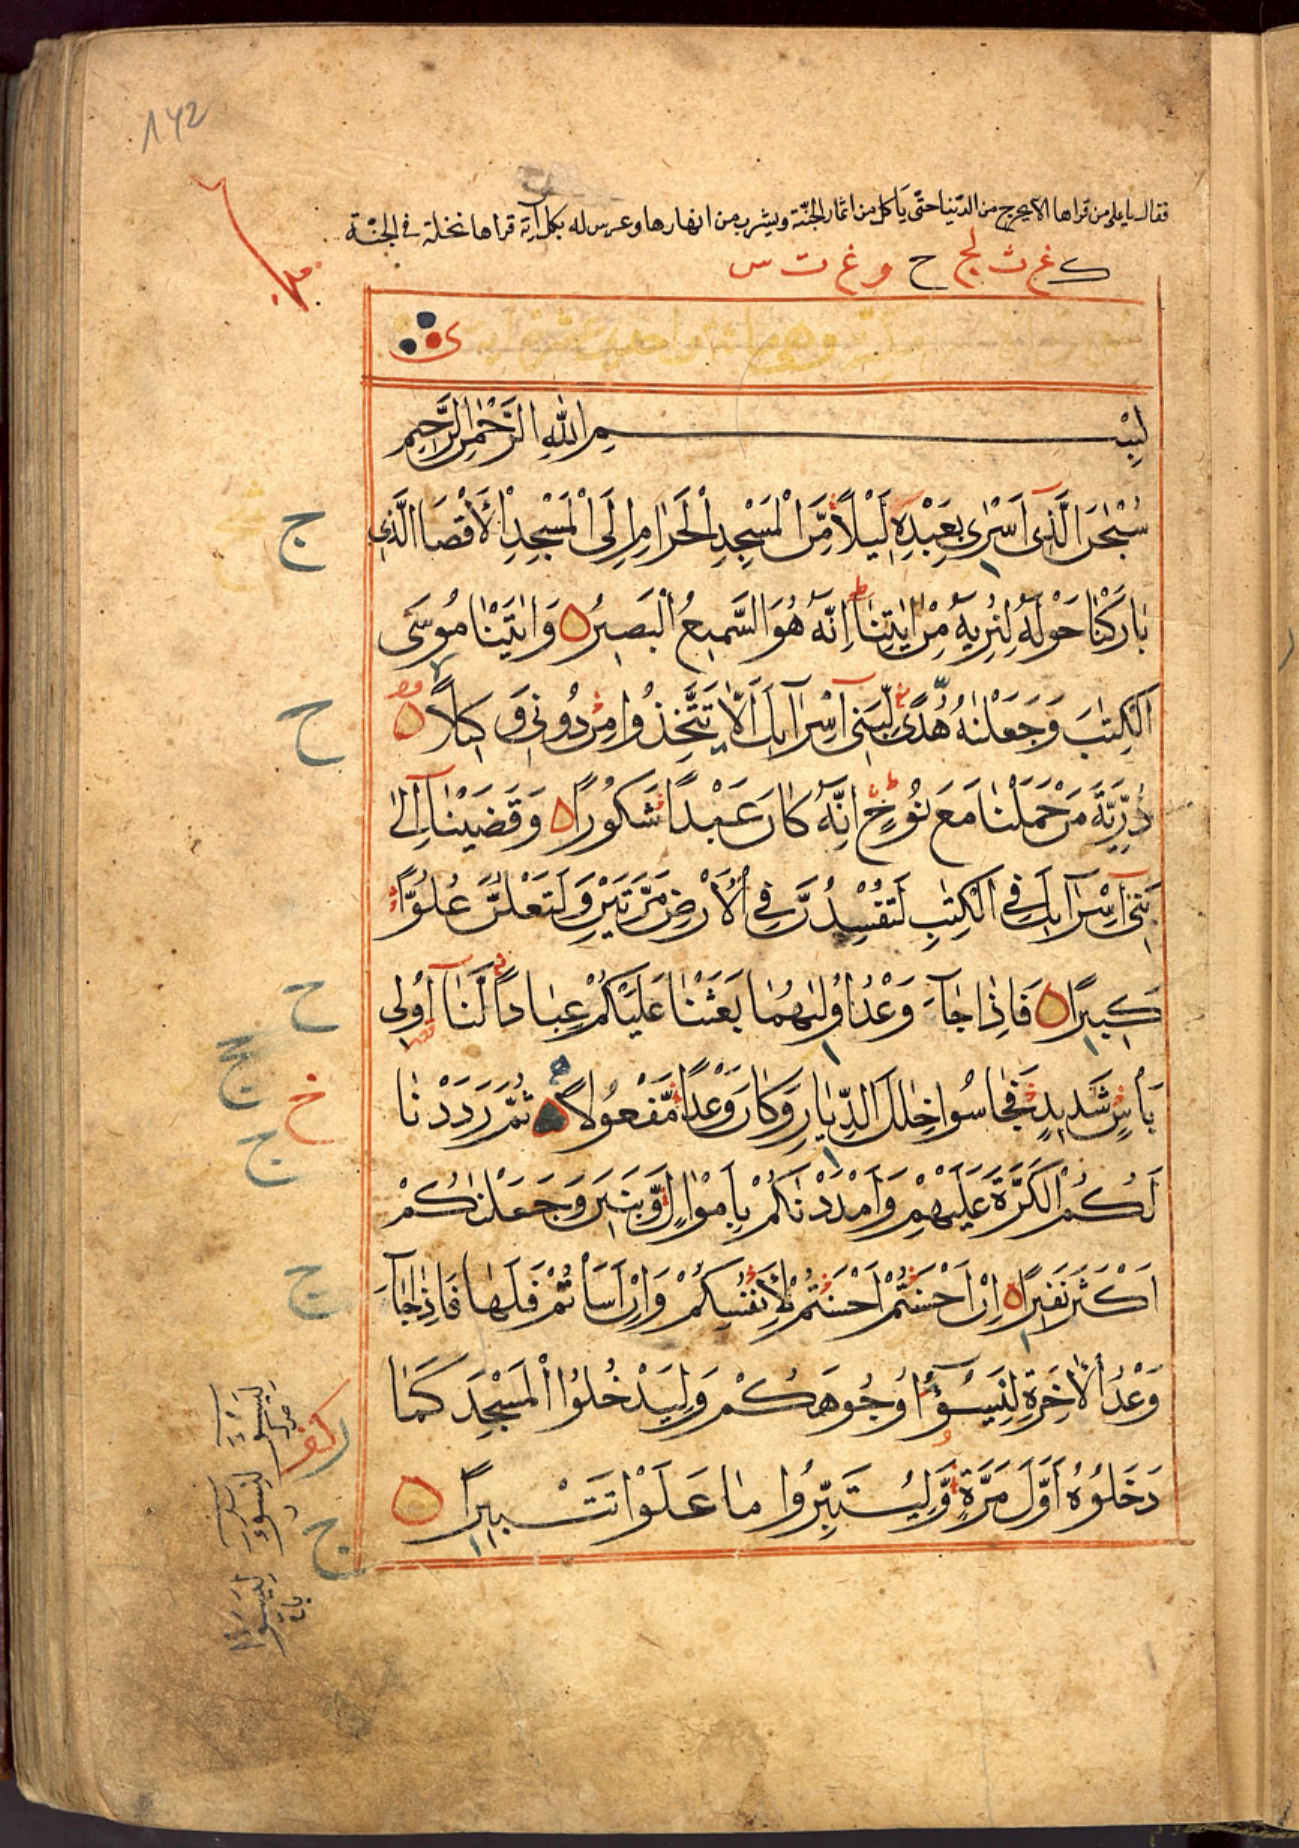 142
فقال يا علي من قراها لا يخرج من الدنيا حتّى يَاكل من اثمار الجنّة ويشرب من انهارها وغرس له بكل آية قراها نخلة في الجنّة
ك غ ث لج ح و غ ت س
وهي مائة واحدى عشر اية
بِسْمِ اللهِ الرَّحْمٰنِ الرَّحِيمِ
سُبْحٰنَ الَّذِى اَسْرٰى بِعَبْدِهِ لَيْلًا مِّنَ الْمَسْجِدِ الْحَرَامِ اِلَى الْمَسْجِدِ الْاَقْصَا الَّذِى
بَارَكْنَا حَوْلَهُ لِنُرِيَهُ مِنْ اٰيٰتِنَا اِنَّهُ هُوَ السَّمِيعُ الْبَصِيرُ وَاٰتَيْنَا مُوسَى
الْكِتٰبَ وَجَعَلْنٰهُ هُدًى لِّبَنِى اِسْرَآئِلَ اَلَّا تَتَّخِذُوا مِنْ دُونِى وَكِيلًا
ذُرِّيَّةَ مَنْ حَمَلْنَا مَعَ نُوحٍ اِنَّهُ كَانَ عَبْدًا شَكُورًا وَقَضَيْنَا اِلٰى
بَنِى اِسْرَآئِلَ فِى الْكِتٰبِ لَتُفْسِدُنَّ فِى الْاَرْضِ مَرَّتَيْنِ وَلَتَعْلُنَّ عُلُوًّا
كَبِيرًا فَاِذَا جَآءَ وَعْدُ اُولٰىهُمَا بَعَثْنَا عَلَيْكُمْ عِبَادًا لَّنَا اُولِى
بَاْسٍ شَدِيدٍ فَجَاسُوا خِلٰلَ الدِّيَارِ وَكَانَ وَعْدًا مَّفْعُولًا ثُمَّ رَدَدْنَا
لَكُمُ الْكَرَّةَ عَلَيْهِمْ وَاَمْدَدْنَاكُمْ بِاَمْوَالٍ وَّبَنِينَ وَجَعَلْنٰكُمْ
اَكْثَرَ نَفِيرًا اِنْ اَحْسَنْتُمْ اَحْسَنْتُمْ لِاَنْفُسِكُمْ وَاِنْ اَسَاْتُمْ فَلَهَا فَاِذَا جَآءَ
وَعْدُ الْاٰخِرَةِ لِيَسُوٓءُا وُجُوهَكُمْ وَلِيَدْخُلُوا الْمَسْجِدَ كَمَا
دَخَلُوهُ اَوَّلَ مَرَّةٍ وَّلِيُتَبِّرُوا مَا عَلَوْا تَتْبِيرًا
ج
ح
ح
ج
خ
ج
ج
ج